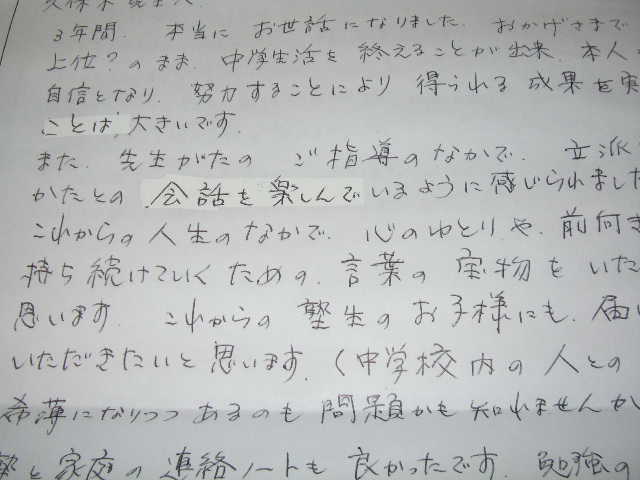 3年間. 本当に お世話になりました. おかげさまで
上位?のまま. 中学生活を 終えることが出来. 本人
自信となり. 努力することにより 得られる 成果を実
ことは, 大きいです.
また. 先生がたの ご指導のなかで. 立派
かたとの 会話を楽しんでいるように感じられました
これからの 人生のなかで. 心のゆとりや. 前向き
持ち続けていくための. 言葉の宝物をいた
思います. これからの 塾生の お子様にも. 届い
いただきたいと思います. (中学校内の 人との
希薄になりつつ あるのも 問題かも 知れませんが
塾と 家庭の 連絡ノートも 良かったです. 勉強の